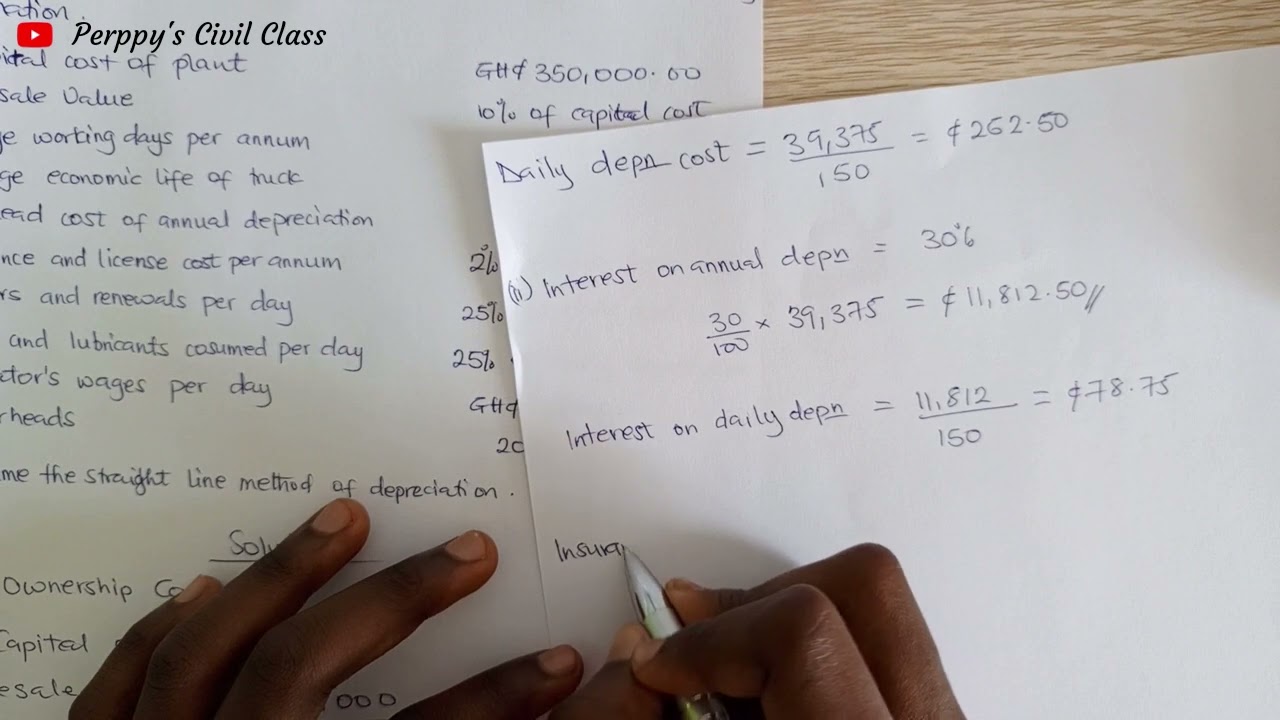 Perppy's Civil Class
cost of plant
GH¢ 350,000.00
Value
10% of capital cost
working days per annum
economic life of truck
cost of annual depreciation
and license cost per annum
2%
and renewals per day
25%
and lubricants cosumed per day
25%
wages per day
GH¢
20
the straight line method of depreciation.
Ownership
Capital
000
Daily depn cost = 39,375 / 150 = ¢262.50
(ii) Interest on annual depn = 30%
30/100 × 39,375 = ¢11,812.50//
Interest on daily depn = 11,812 / 150 = ¢78.75
Insura